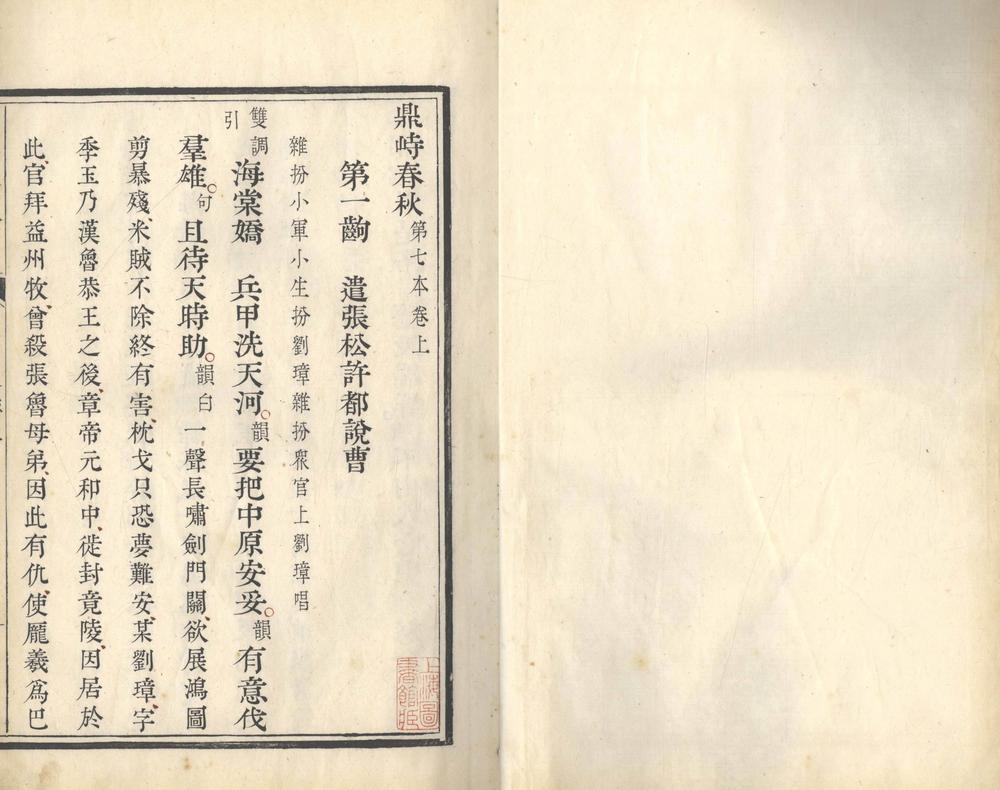 鼎峙春秋 第七本卷上
第一齣 遣張松許都說曹
雜扮小軍小生扮劉璋雜扮衆官上劉璋唱
雙調引 海棠嬌 兵甲洗天河韻要把中原安妥韻有意伐
羣雄句且待天時助韻白一聲長嘯劍門關欲展鴻圖
剪暴殘米賊不除終有害枕戈只恐夢難安某劉璋字
季玉乃漢魯恭王之後章帝元和中徙封竟陵因居於
此官拜益州牧曾殺張魯母弟因此有仇使龐羲爲巴
上海圖書館藏